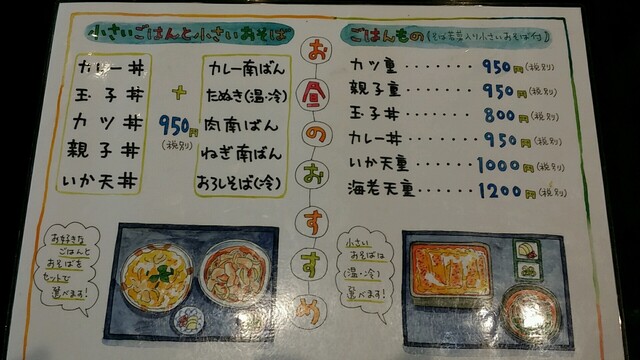 小さいごはんと小さいおそば
カレー丼
玉子丼
カツ丼
親子丼
いか天丼
+
950円
(税別)
カレー南ばん
たぬき(温・冷)
肉南ばん
ねぎ南ばん
おろしそば(冷)
お好きな
ごはんと
おそばを
セットで
選べます!
お昼のおすすめ
ごはんもの(そば若芽入り小さいおそば付)
カツ重・・・・・・・・950円(税別)
親子重・・・・・・・・950円(税別)
玉子丼・・・・・・・・800円(税別)
カレー丼・・・・・・・950円(税別)
いか天重・・・・・・1000円(税別)
海老天重・・・・・・1200円(税別)
小さい
おそばは
(温・冷)
選べます!